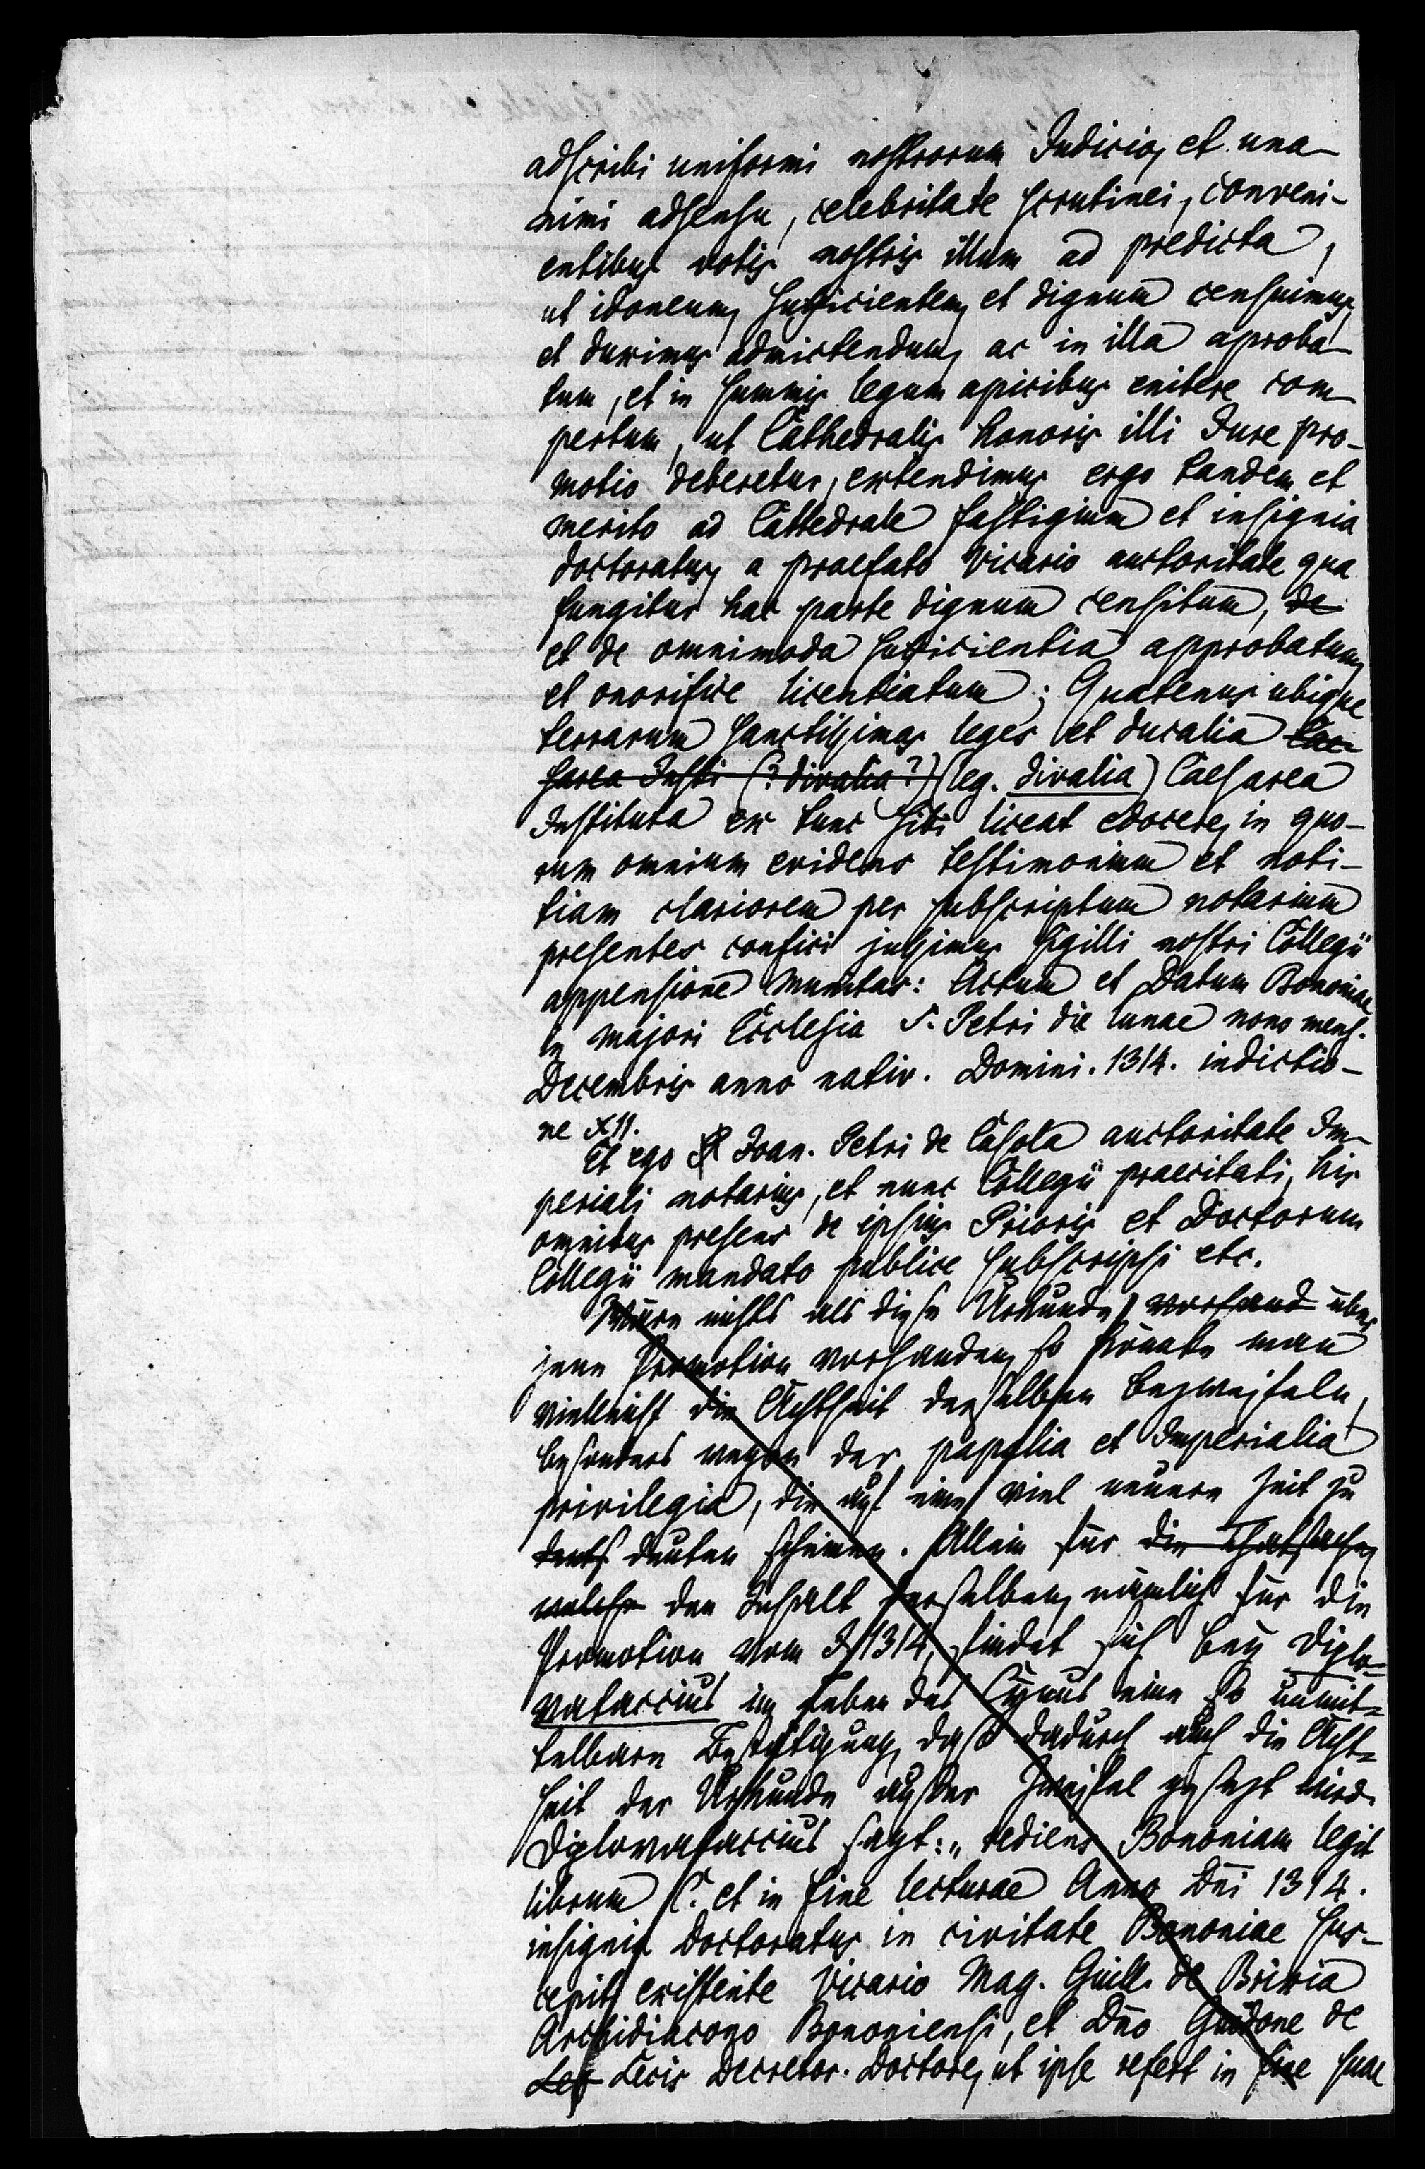 adscribi uniformi nostrorum Judicio, et una-
nimi adsensu, celebritate scrutinei, conveni-
entibus votis nostris illum ad predicta,
ut idoneum, sufficientem, et dignum censuimus,
et duximus admictendum, ac in illa aproba-
tum, et in summis legum apicibus enitere com-
pertum, ut Cathedralis honoris illi Jure pro-
motio deberetur, extendimus ergo tandem et
merito ad Cattedrale fastigium et insignia
doctoratus, a praefato Vicario auctoritate qua
fungitur hac parte dignum censitum, de
et de omnimoda suficientia approbatum,
et onorifice licentiatum; Quatenus ubique
terrarum sanctissimas leges et ducalia Cae-
sarea Insti (? divalia?) (leg. divalia) Caesarea
Instituta ex tunc sibi liceat edocere, in quo-
rum omnium evidens testimonium et noti-
tiam clariorem per subscriptum notarium
presentes confici jussimus sigilli nostri Collegii
appensione munitas: Actum et Datum Bononiae
in majori Ecclesia S. Petri die lunae nono mens.
Decembris anno nativ. Domini. 1314. indictio-
ne XII.
Et ego Joan. Petri de Casola auctoritate Im-
periali notarius, et nunc Collegii praecitati, his
omnibus presens de ipsius Prioris et Doctorum
Collegii mandato publice subscripsi etc.
Wäre nichts als diese Urkunde vorhand über
jene Promotion vorhanden, so könnte man
vielleicht die Ächtheit derselben bezweifeln,
besonders wegen der papalia et Imperialia
privilegia, die auf eine viel neuere Zeit zu
deuten scheinen. Allein für die Thatsache,
welche den Inhalt derselben, nämlich für die
Promotion vom J. 1314, findet sich bey Diplo-
vataccius im Leben des Cynus eine so unmit-
telbare Bestätigung, daß dadurch auch die Ächt-
heit der Urkunde außer Zweifel gesetzt wird.
Diplovataccius sagt: „rediens Bononiam legit
librum C. et in fine lecturae Anno Dni 1314.
insignia doctoratus in civitate Bononiae sus-
cepit, existente Vicario Mag. Guill. de Brixia
Archidiacono Bononiensi, et Dno Guidone de
Leg Lecis Decretor. Doctore, ut ipse refert in fine suae